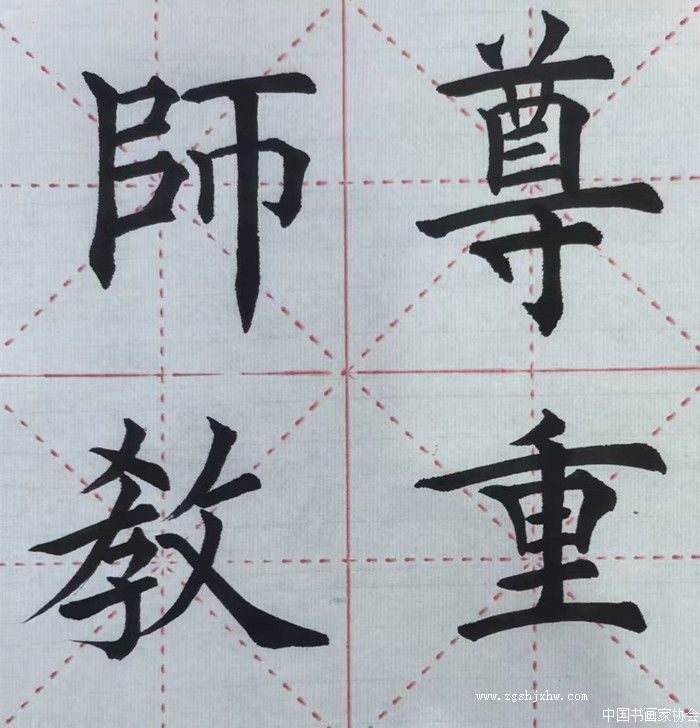 尊師
重教
www.zgshjxhw.com
中国书画家协会